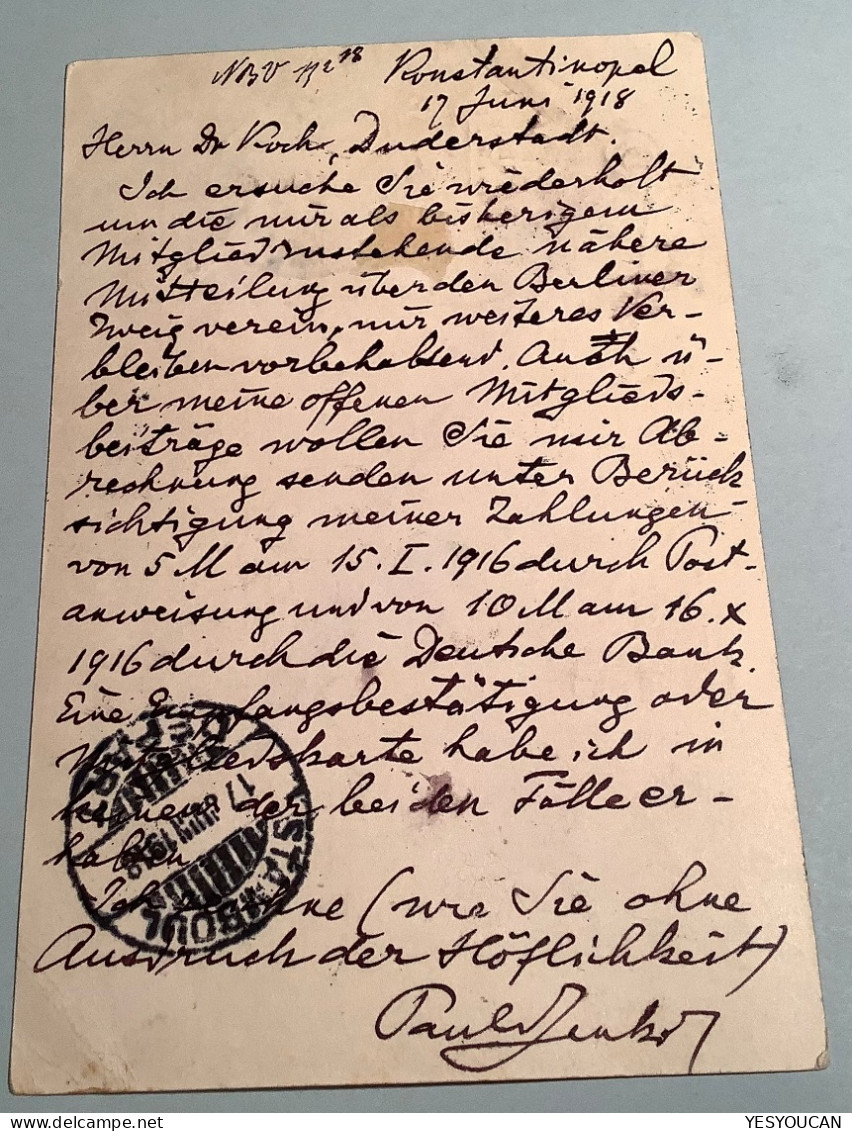 Konstantinopel
17 Juni 1918
Herrn Dr Koch, Duderstadt.
Ich ersuche Sie wiederholt
um die mir als bisherigem
Mitglied zustehende nähere
Mitteilung über den Berliner
Zweigverein, mir weiteres Ver-
bleiben vorbehaltend. Auch ü-
ber meine offenen Mitglieds-
beiträge wollen Sie mir Ab-
rechnung senden unter Berück
sichtigung meiner Zahlungen
von 5 M am 15. I. 1916 durch Post-
anweisung und von 10 M am 16. X
1916 durch die Deutsche Bank.
Eine Empfangsbestätigung oder
Mitgliedskarte habe ich in
keinem der beiden Fälle er-
halten.
Ich (wie Sie ohne
Ausdruck der Höflichkeit)
Paul
STAMBOUL
17 JUIN 1918
YESYOUCAN